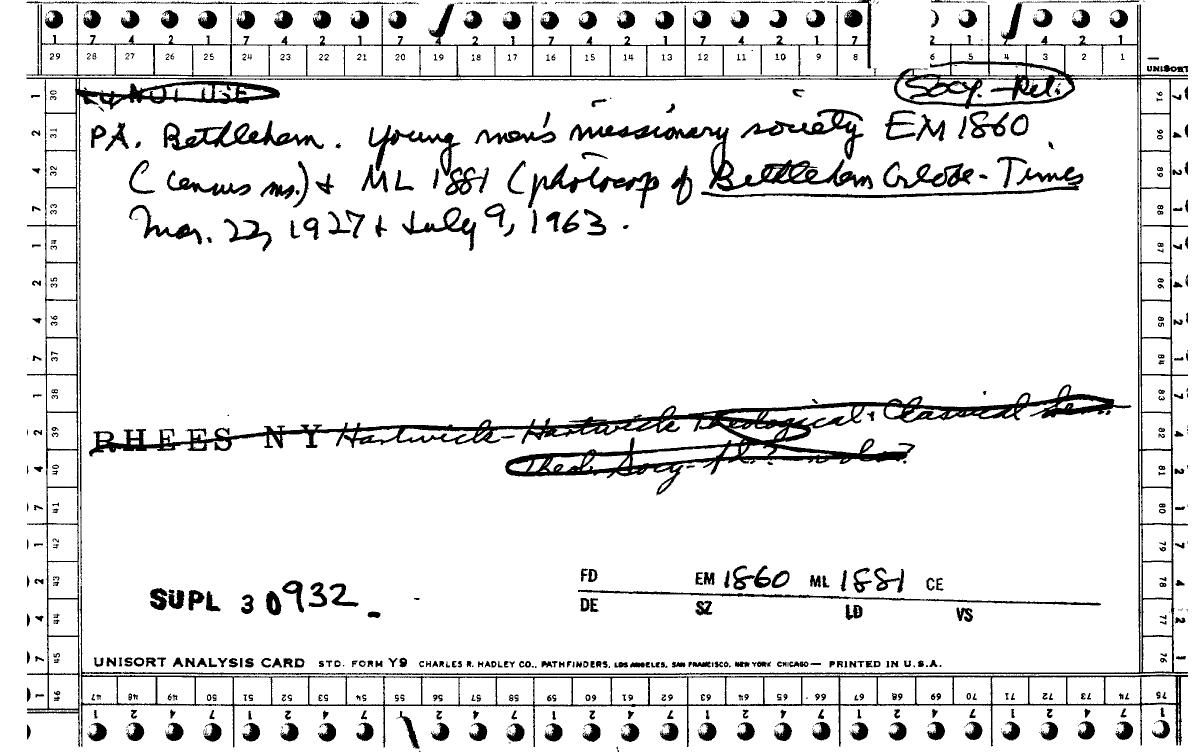 1 7 4 2 1 7 4 2 1 7 4 2 1 7 4 2 1 7 4 2 1 7 2 1 7 4 2 1
29 28 27 26 25 24 23 22 21 20 19 18 17 16 15 14 13 12 11 10 9 8 6 5 4 3 2 1
UNISORT
DO NOT USE
Socy. - Rel.
PA. Bethlehem. Young men's missionary society EM 1860
(census ms.) & ML 1881 (photocop of Bethlehem Globe-Times
Mar. 22, 1927 & July 9, 1963.
RHEES NY Hartwick-Hartwick Theological & Classical Sem.
Theol. Socy-
SUPL 30932
FD EM 1860 ML 1881 CE
DE SZ LD VS
UNISORT ANALYSIS CARD STD. FORM Y9 CHARLES R. HADLEY CO., PATHFINDERS, LOS ANGELES, SAN FRANCISCO, NEW YORK CHICAGO — PRINTED IN U.S.A.
46 47 48 49 50 51 52 53 54 55 56 57 58 59 60 61 62 63 64 65 66 67 68 69 70 71 72 73 74 75